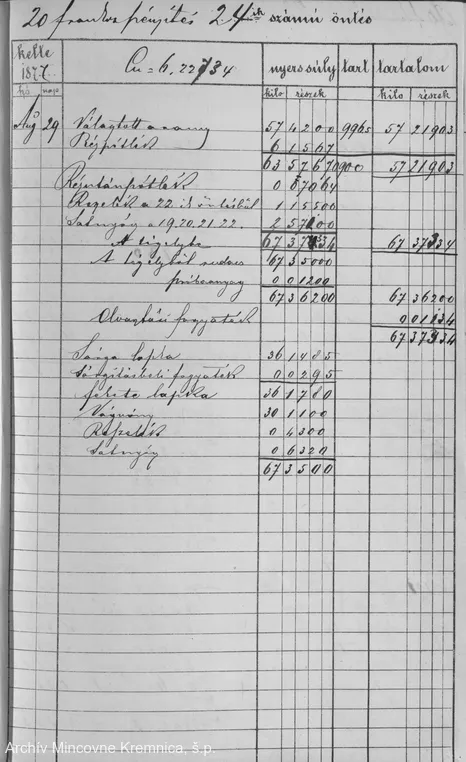 20 frankos pénzités 24ik számú öntés
kelte 1877. Cu = 6.22734 nyerssúly tart tartalom
hó nap kilo részek kilo részek
Aug 29 Válogtott arany 57 4200 9965 57 21903
Rézpótlék 6 1567
63 5767 0900 57 21903
Rézutánpótlék 0 67064
Rezelék a 22ik öntésből 1 15500
19.20.21.22.
A tégelybe 67 37334 67 37334
A tégelyből 67 35000
próbaanyag 0 01200
67 36200 67 36200
Olvasztási fogyaték 0 01134
67 37334
Sárga lapka 36 1485
Sárgitásbeli fogyaték 0 0295
fekete lapka 36 1780
Vágvány 30 1100
Reszelék 0 4300
0 6320
67 3500
Archív Mincovne Kremnica, š.p.